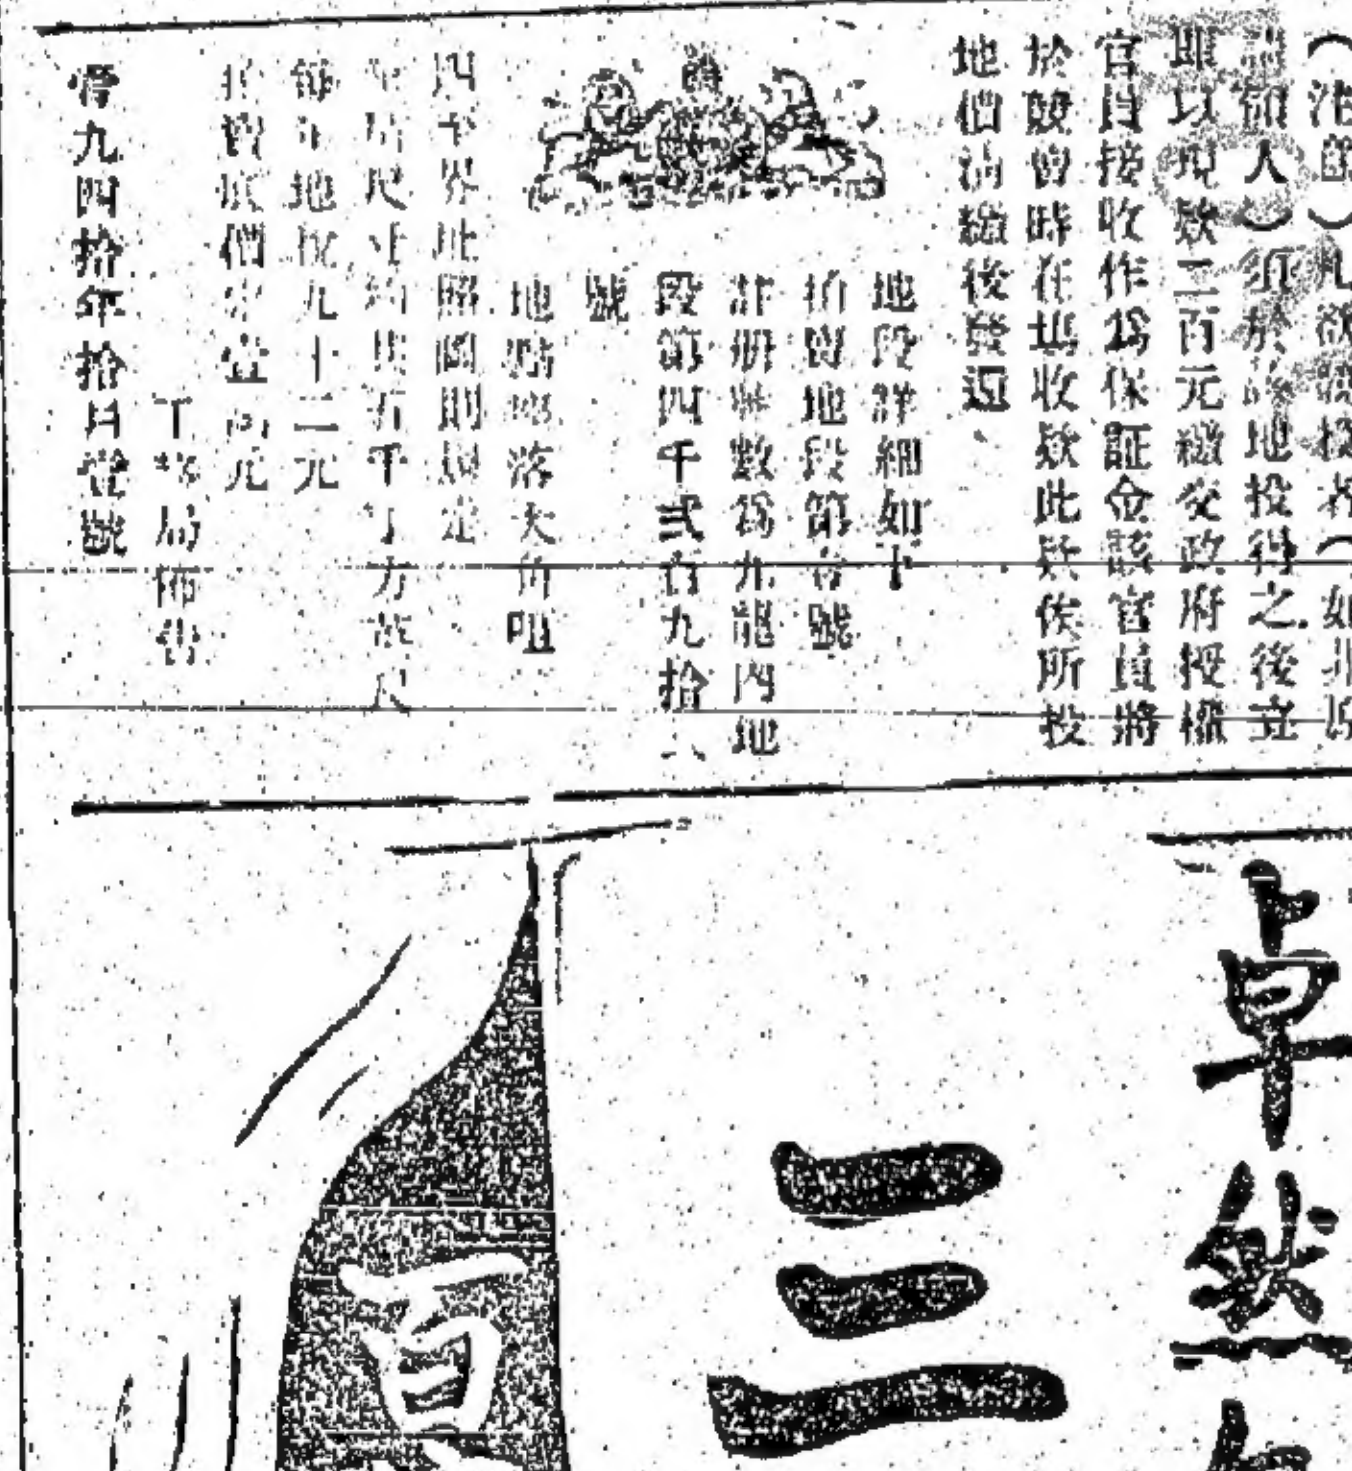 （注意）凡欲競投者（如非原
請領人）須於該地投得之後立
即以現欵二百元繳交政府授權
官員接收作為保証金該官員將
於競會時在塲收欵此欵俟所投
地價清繳後發還
地段詳細如下
拍賣地段第壹號
註册號數為九龍內地
段第四千弍百九拾八
號
地點坐落大角咀
四至界址照圖則規定
尺寸約共五千 方英尺
每年地稅九十二元
拍賣底價 壹 元
工務局佈告
九四拾年拾月壹號
卓然
三
百